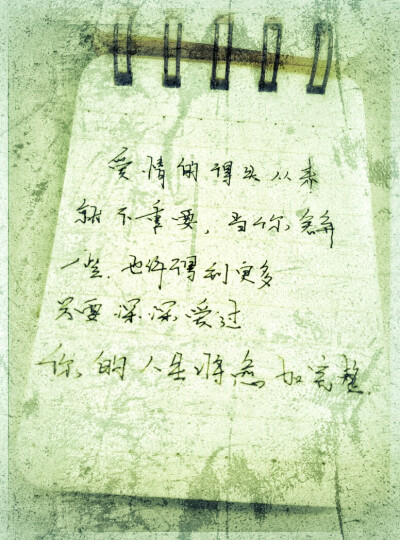 爱情的得失从来
就不重要，当你舍弃
一些，也许得到更多
只要深深爱过
你的人生将愈加完整.